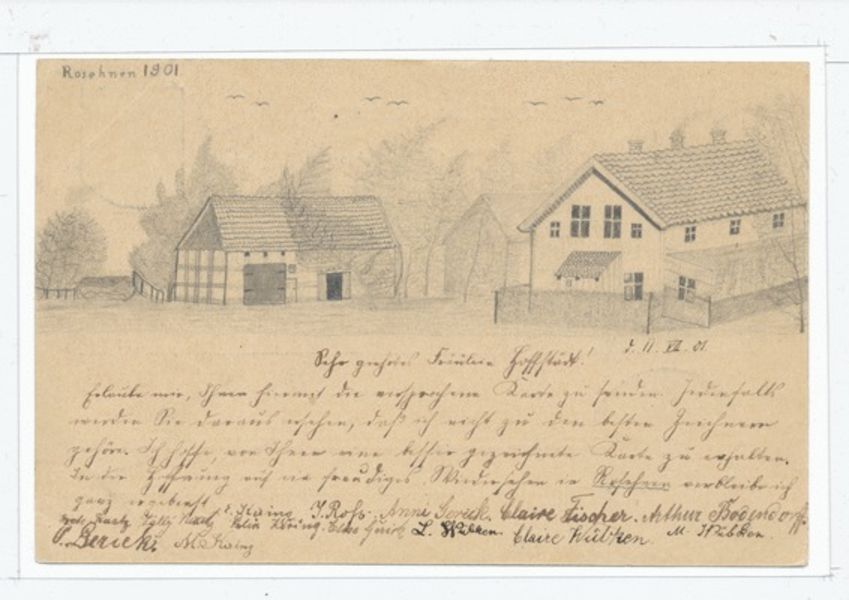 Rosehnen 1901
d. 11. VII. 01.
Sehr geehrtes Fräulein Hoffstädt!
Erlaube mir, Ihnen hiermit die versprochene Karte zu senden. Jedenfalls
werden Sie daraus ersehen, daß ich nicht zu den besten Zeichnern
gehöre. Ich hoffe, von Ihnen eine besser gezeichnete Karte zu erhalten.
In der Hoffnung auf ein freudiges Wiedersehen in Rosehnen verbleibe ich
ganz ergebenst
J. Rohs. Anni Gerick. Claire Fischer. Arthur Bodendorff.
L. Wübken. Claire Wübken. M. Wübken.
Gericke M. Kainz